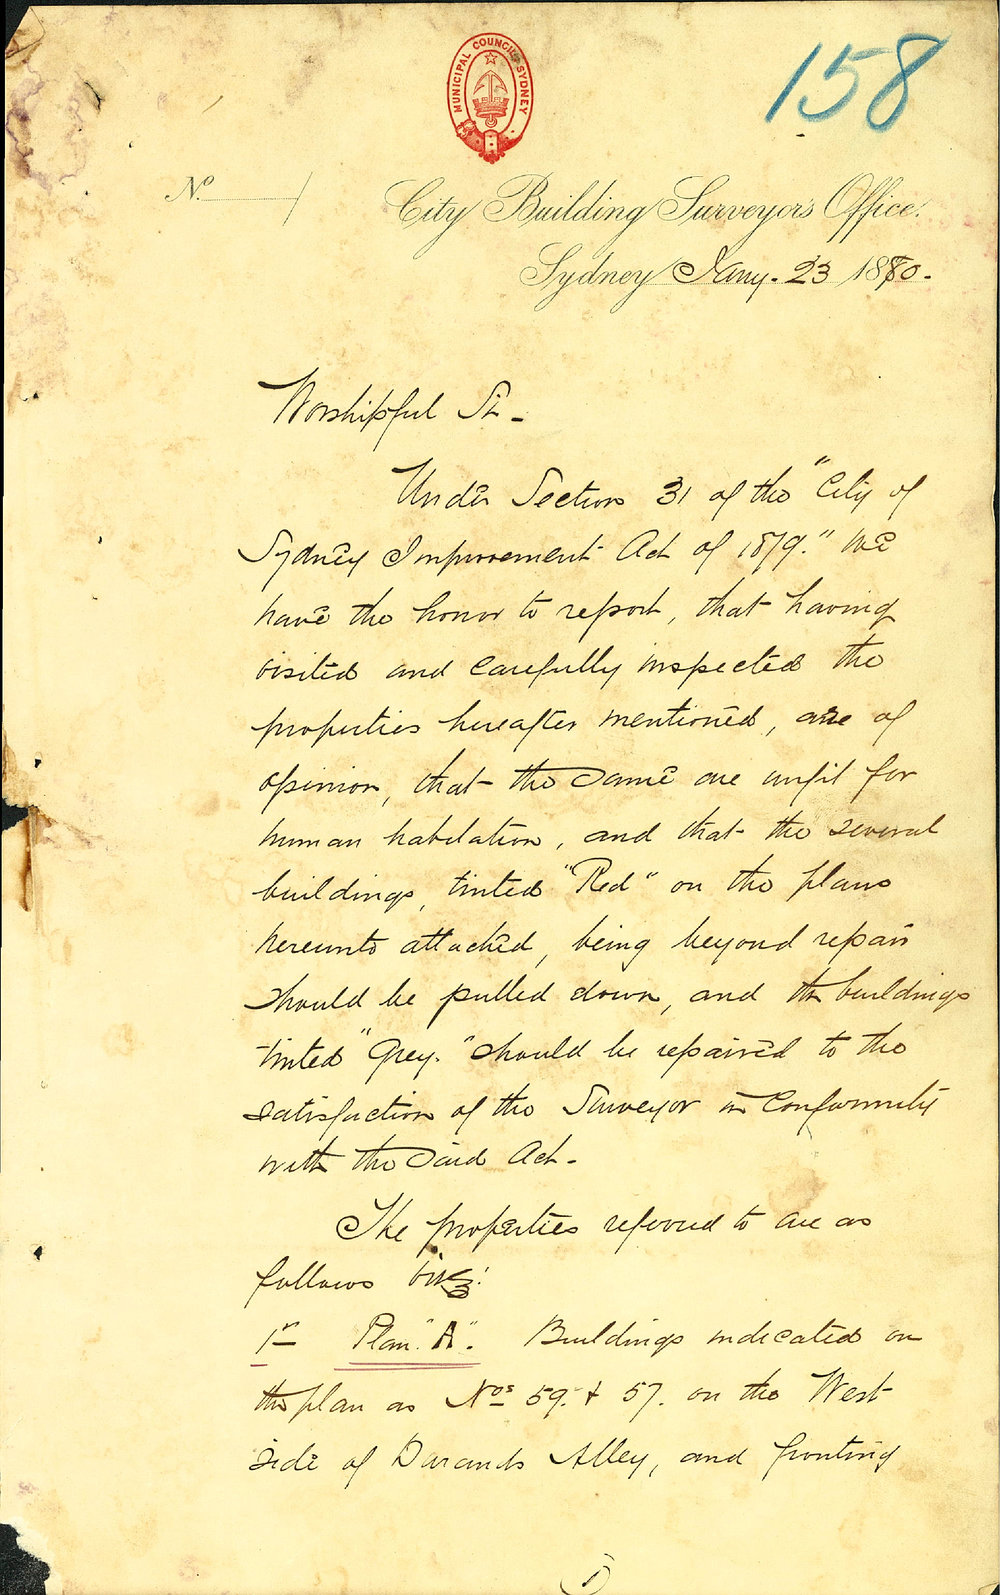 158
MUNICIPAL COUNCIL SYDNEY
No.
City Building Surveyors Office.
Sydney Jany. 23 1880.
Worshipful Sir -
Under Section 31 of the "City of
Sydney Improvement Act of 1879." We
have the honor to report, that having
visited and carefully inspected the
properties hereafter mentioned, are of
opinion, that the same are unfit for
human habitation, and that the several
buildings, tinted "Red" on the plans
hereunto attached, being beyond repair
should be pulled down, and the buildings
tinted "Grey." should be repaired to the
satisfaction of the Surveyor in conformity
with the said Act -
The properties referred to are as
follows viz:
1st Plan "A". Buildings indicated on
the plan as Nos 59. & 57. on the West
side of Durands Alley, and fronting
1